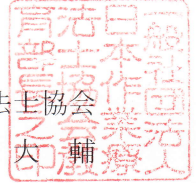 一般社団法人
日本作業療
法士協会教
育部長之印
法士協会
大 輔